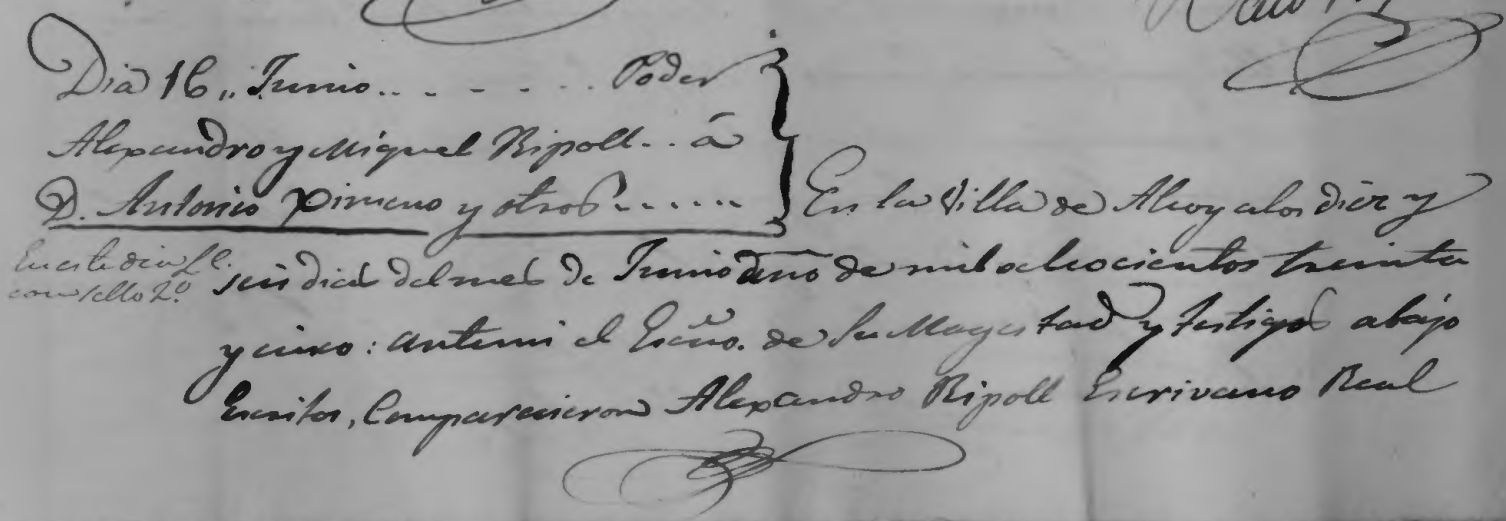 Dia 16,, Junio.. - - - ... Poder
Alexandro y Miguel Ripoll.. á
D. Antonio Ximeno y otros......
En la Villa de Alcoy alos diez y
En este dia
con sello 2º
seis dias del mes de Junio año de mil ochocientos treinta
y cinco: antemi el Escño. de Su Magestad y testigos abajo
Escritos, Comparecieron Alexandro Ripoll Escrivano Real